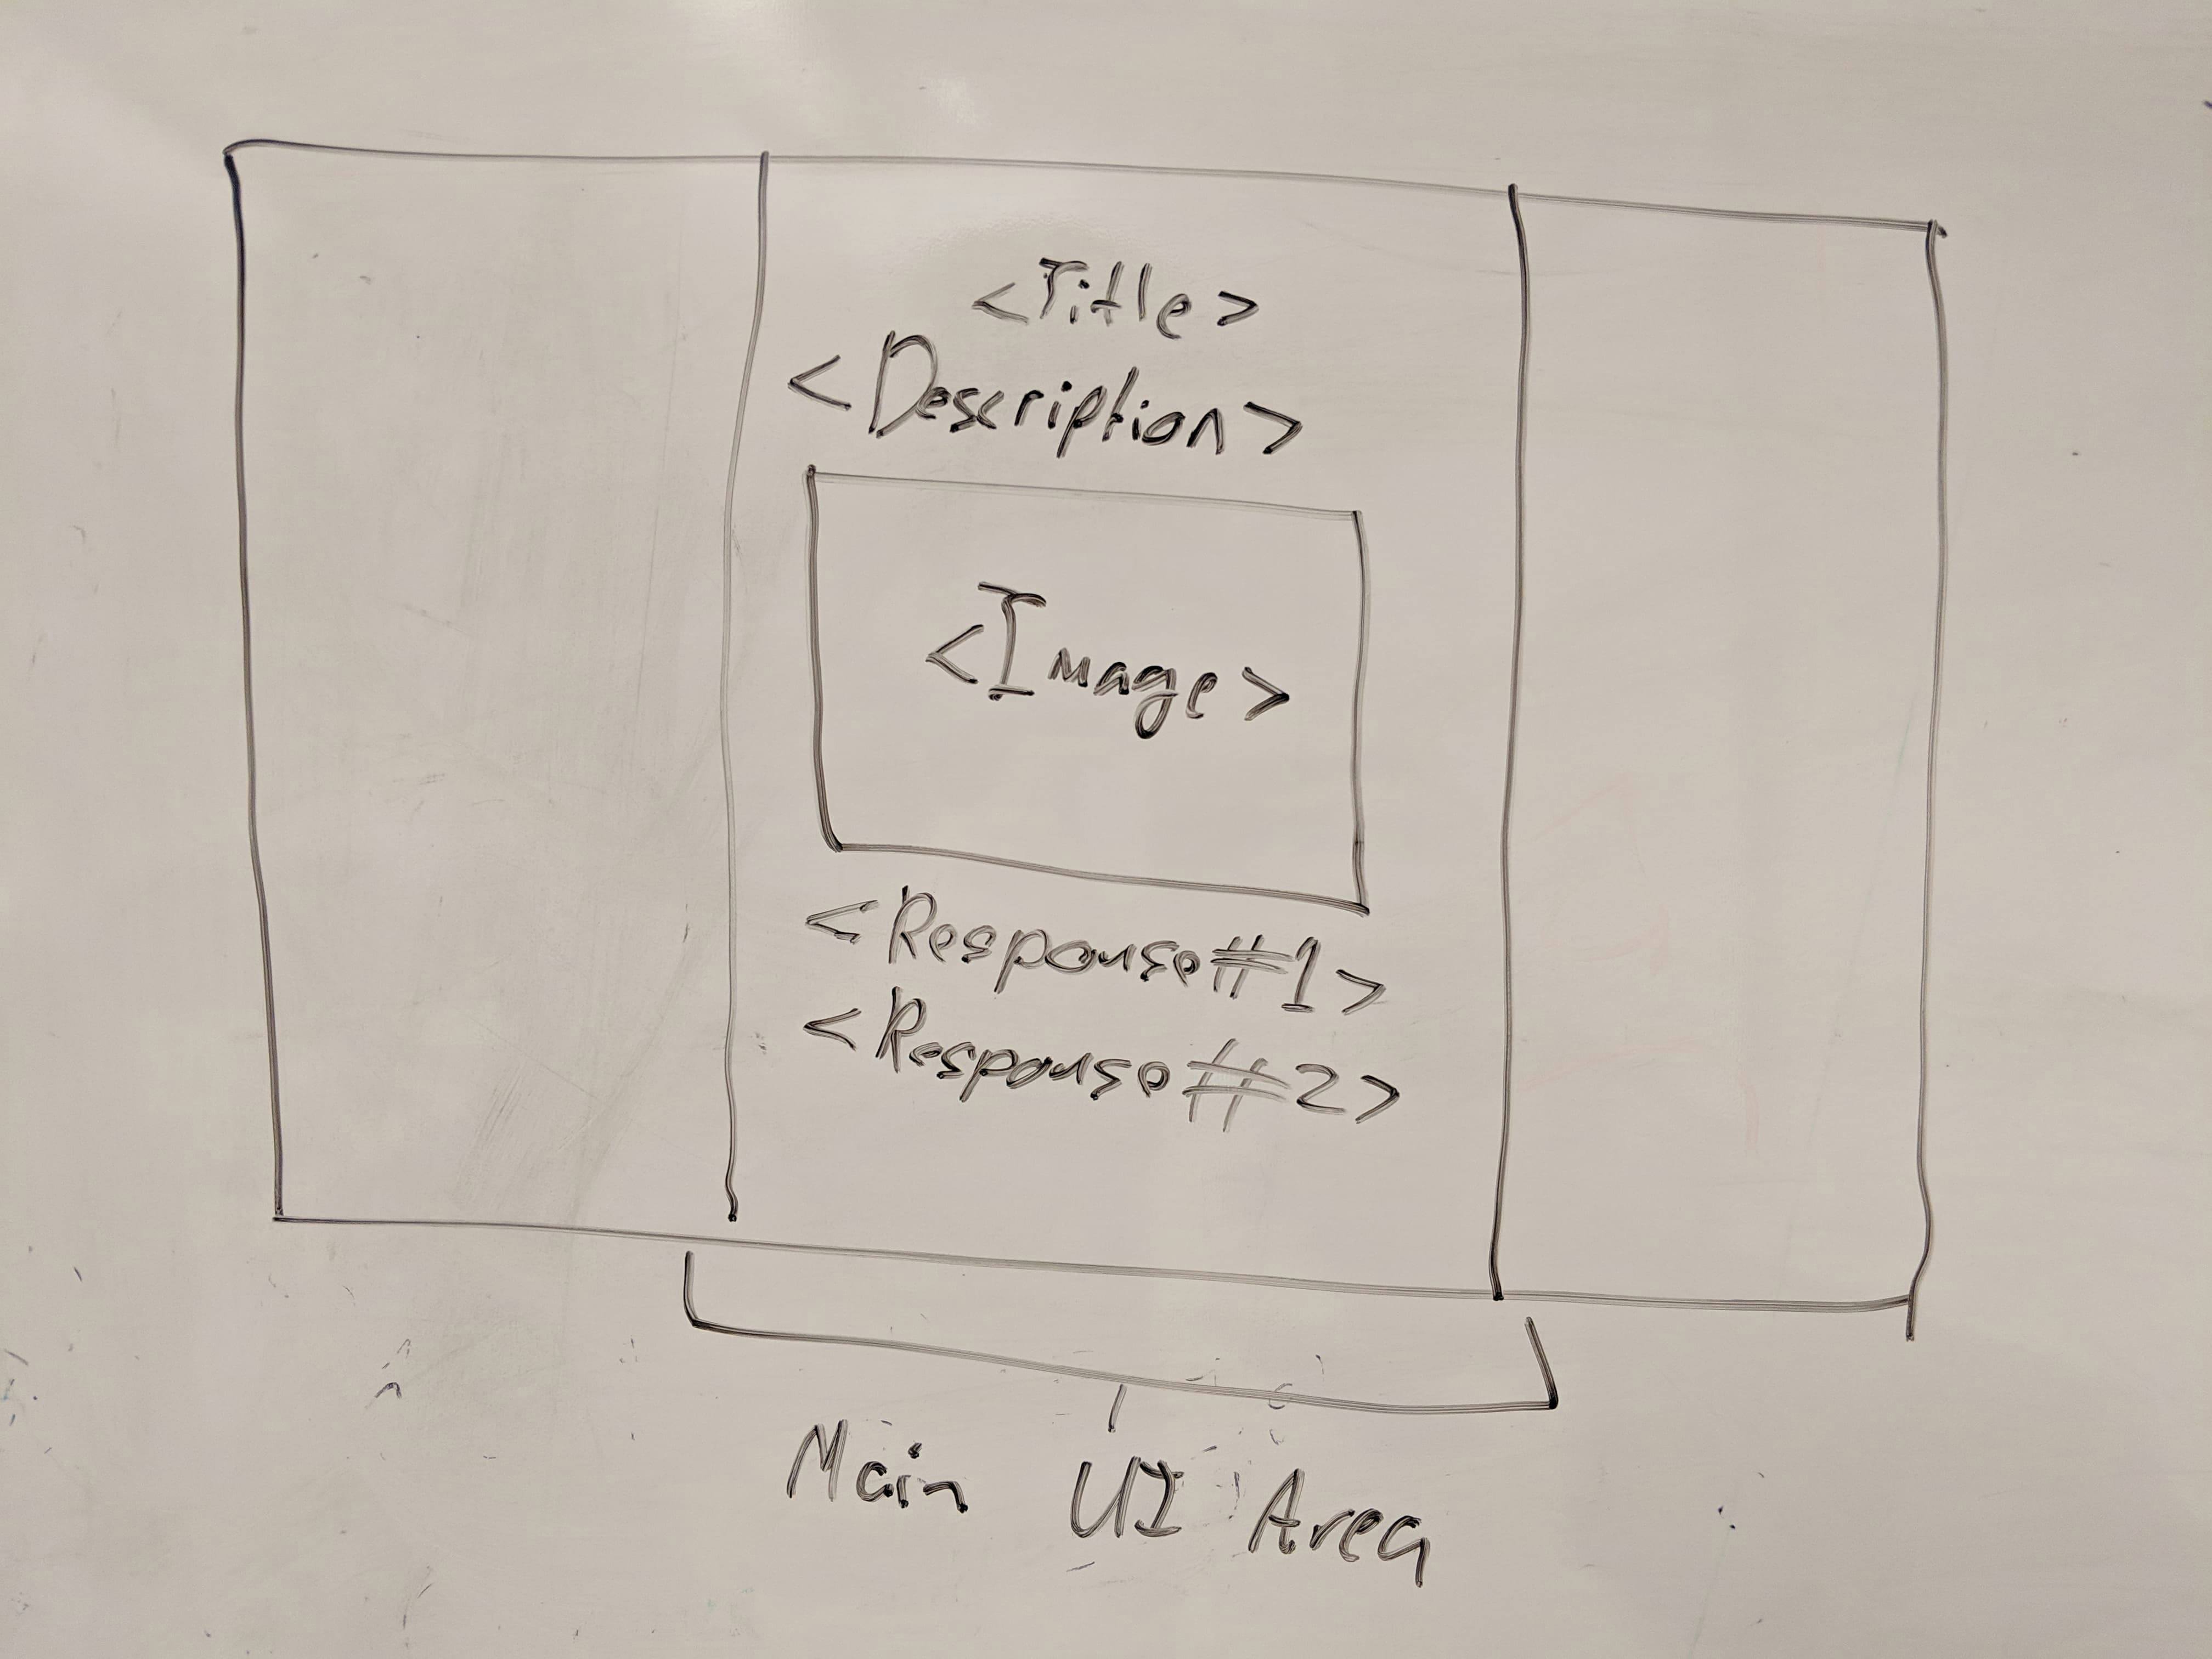 <Title>
<Description>
<Image>
<Response#1>
<Response#2>
Main UI Area